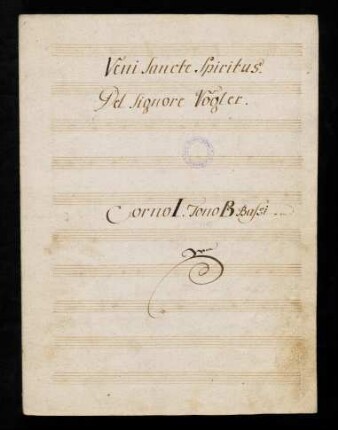 Veni Sancte Spiritus.
Del Signore Vogler.
Corno I. Tono B Bassi